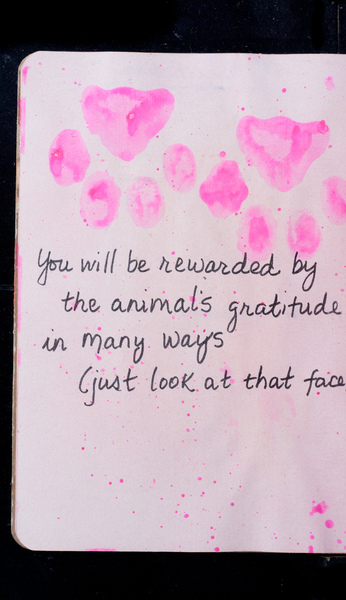 You will be rewarded by
the animal's gratitude
in many ways
(just look at that face